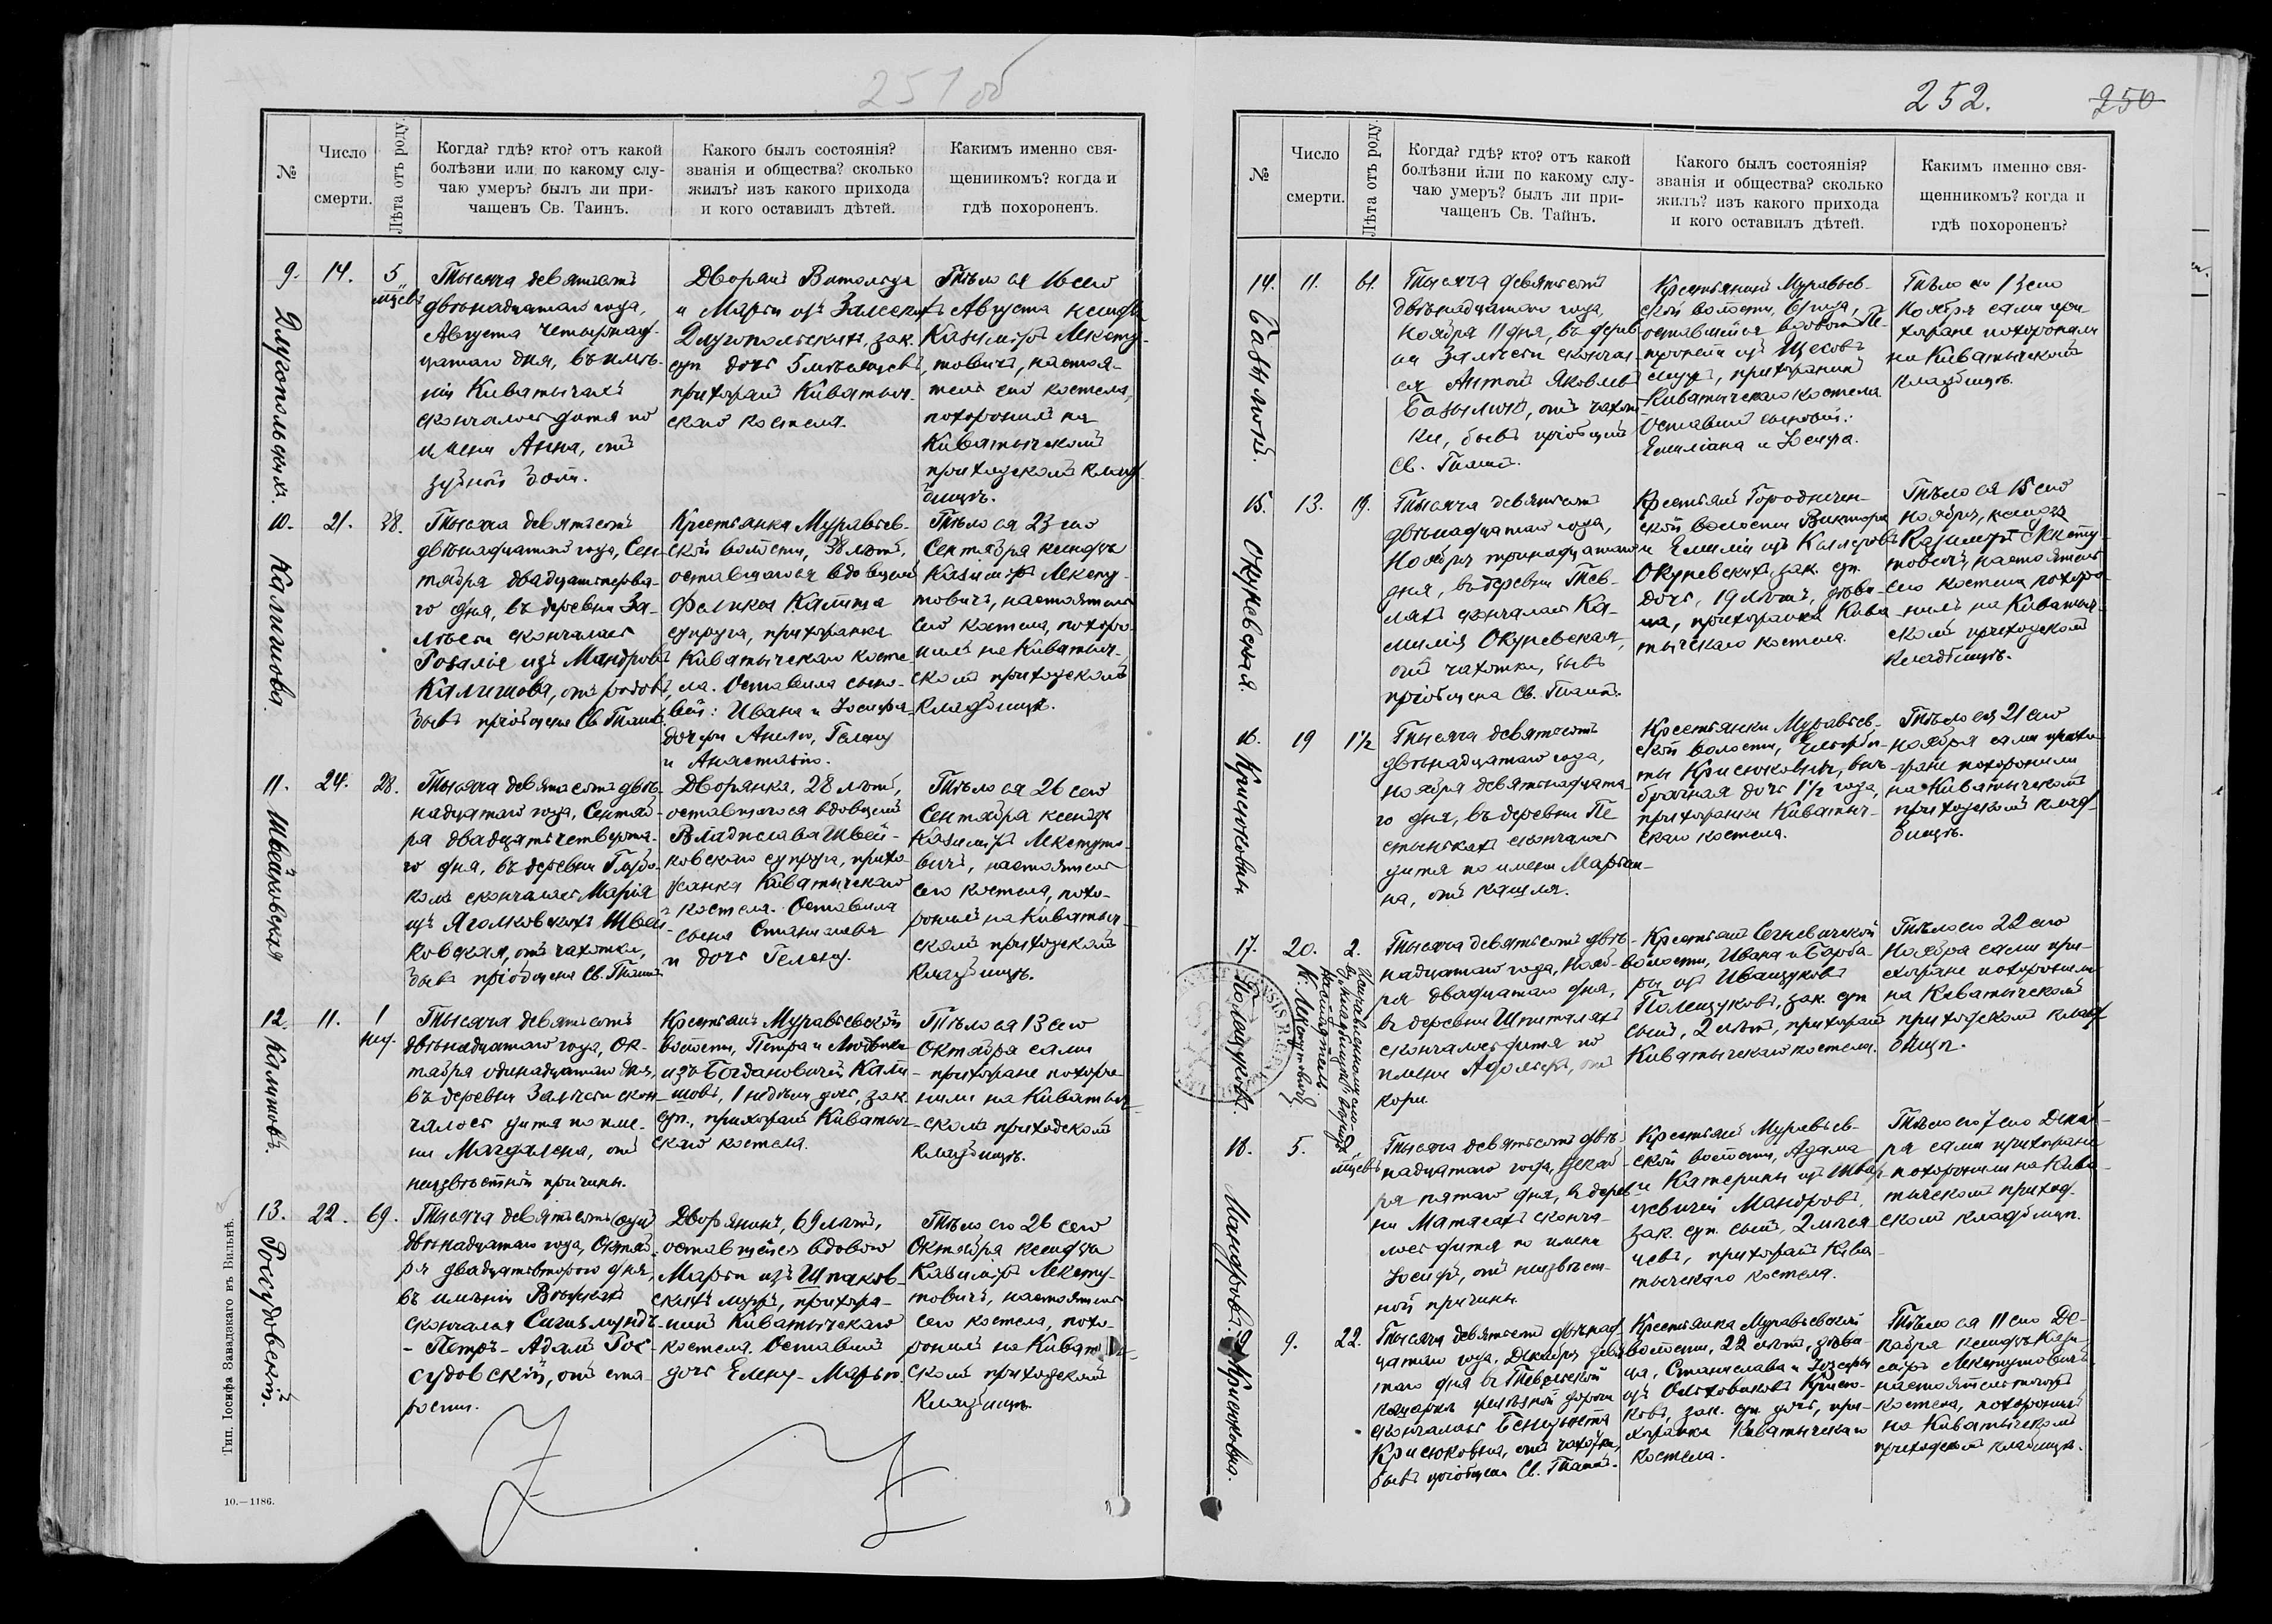 251 об
№
Число
смерти.
Лѣта отъ роду.
Когда? гдѣ? кто? отъ какой
болѣзни или по какому слу-
чаю умеръ? былъ ли при-
чащенъ Св. Таинъ.
Какого былъ состоянія?
званія и общества? сколько
жилъ? изъ какого прихода
и кого оставилъ дѣтей.
Какимъ именно свя-
щенникомъ? когда и
гдѣ похороненъ.
9.
Длугопольскихъ.
14.
5
мцевъ
Тысяча девятьсотъ
двѣнадцатаго года,
Августа четырнад-
цатаго дня, въ имѣ-
ніи Киватычахъ
скончалось дитя по
имени Анна, отъ
зубной боли.
Дворянъ Витольда
и Маріи изъ
Длугопольскихъ, зак.
суп. дочь 5 мѣсяцевъ
прихожанъ Киватыч-
скаго костела.
Тѣло ея 16 сего
Августа ксендзъ
Казиміръ Лекету-
товичъ, настоя-
тель сего костела,
похоронилъ на
Киватычскомъ
приходскомъ клад-
бищѣ.
10.
Калишова
21.
38.
Тысяча девятьсотъ
двѣнадцатаго года, Сен-
тября двадцатьперва-
го дня, въ деревни За-
лѣсьи скончалась
Розалія изъ Мандровъ
Калишова, отъ родовъ
бывъ пріобщена Св. Таинъ.
Крестьянка Муравьев-
ской волости, 38 лѣтъ,
оставшагося вдовцемъ
Феликса Калиша
супруга, прихожанка
Киватычскаго косте
ла. Оставила сыно-
вей: Ивана и Іосифа
дочери Анелю, Гелену
и Анастасію.
Тѣло ея 23 сего
Сентября ксендзъ
Казиміръ Лекету-
товичъ, настоятель
сего костела, похоро-
нилъ на Киватыч-
скомъ приходскомъ
кладбищѣ.
11.
Швейковская
24.
28.
Тысяча девятьсотъ двѣ-
надцатаго года, Сентяб-
ря двадцатьчетверта-
го дня, въ деревни Глубо-
комъ скончалась Марія
изъ Яголковскихъ Швей-
ковская, отъ чахотки,
бывъ пріобщена Св. Таинъ
Дворянка, 28 лѣтъ,
оставшагося вдовцемъ
Владислава Швей-
ковскаго супруга, прихо-
жанка Киватычскаго
костела. Оставила
сына Станислава
и дочь Гелену.
Тѣло ея 26 сего
Сентября ксендзъ
Казиміръ Лекетуто-
вичъ, настоятель
сего костела, похо-
ронилъ на Киватыч-
скомъ приходскомъ
кладбищѣ.
12.
Калишовъ.
11.
1
нед.
Тысяча девятьсотъ
двѣнадцатаго года, Ок-
тября одинадцатаго дня,
въ деревни Залѣсьи скон-
чалось дитя по име-
ни Магдалена, отъ
неизвѣстной причины.
Крестьянъ Муравьевской
волости, Петра и Людвики
изъ Богдановичей Кали-
шовъ, 1 недѣли дочь, зак.
суп., прихожанъ Киватыч-
скаго костела.
Тѣло ея 13 сего
Октября сами
прихожане похоро-
нили на Киватыч-
скомъ приходскомъ
кладбищѣ.
13.
Россудовскій.
22.
69.
Тысяча девятьсотъ
двѣнадцатаго года, Октяб-
ря двадцатьвторого дня,
въ имѣніи
скончался Сигизмундъ
- Петръ - Адамъ Рос-
судовскій, отъ ста-
рости.
Дворянинъ, 69 лѣтъ,
оставшейся вдовою
Маріи изъ Шпаков-
скихъ мужъ, прихожа-
нинъ Киватычскаго
костела. Оставилъ
дочь Елену-Марью.
Тѣло его 26 сего
Октября ксендзъ
Казиміръ Лекету-
товичъ, настоятель
сего костела, похо-
ронилъ на Киватыч-
скомъ приходскомъ
кладбищѣ.
Тип. Іосифа Завадзкаго въ Вильнѣ.
10.—1186.
252.
250
№
Число
смерти.
Лѣта отъ роду.
Когда? гдѣ? кто? отъ какой
болѣзни или по какому слу-
чаю умеръ? былъ ли при-
чащенъ Св. Тайнъ.
Какого былъ состоянія?
званія и общества? сколько
жилъ? изъ какого прихода
и кого оставилъ дѣтей.
Какимъ именно свя-
щенникомъ? когда и
гдѣ похороненъ?
14.
Базылюкъ.
11.
61.
Тысяча девятьсотъ
двѣнадцатаго года,
Ноября 11 дня, въ дерев-
ни Залѣсьи скончал-
ся Антонъ Яковлевъ
Базылюкъ, отъ чахот-
ки, бывъ пріобщенъ
Св. Таинъ.
Крестьянинъ Муравьев-
ской волости, 61 года,
оставшейся вдовой Пе-
тронели изъ
мужъ, прихожанинъ
Киватычскаго костела
Оставилъ сыновей:
Емиліана и Іосифа.
Тѣло его 13 сего
Ноября сами при-
хожане похоронили
на Киватычскомъ
кладбищѣ.
15.
Окуневская.
13.
19.
Тысяча девятьсотъ
двѣнадцатаго года,
Ноября тринадцатаго
дня, въ деревни Тев-
ляхъ скончалась Ка-
милія Окуневская,
отъ чахотки, бывъ
пріобщена Св. Таинъ.
Крестьянъ Городечен-
ской волости Виктора
и Емиліи изъ
Окуневскихъ, зак. суп.
дочь, 19 лѣтъ, дѣви-
ца, прихожанка Кива
тычскаго костела.
Тѣло ея 15 сего
ноября, ксендзъ
Казиміръ Лекету-
товичъ, настоятель
сего костела похоро-
нилъ на Киватыч-
скомъ приходскомъ
кладбищѣ.
16.
Крисюковны
19
1½
Тысяча девятьсотъ
двѣнадцатаго года,
ноября девятнадцата-
го дня, въ деревни Пе
стынькахъ скончалось
дитя по имени Марьян-
на, отъ кашля.
Крестьянки Муравьев-
ской волости,
Крисюковны, внѣ-
брачная дочь 1½ года,
прихожанки Киватыч-
скаго костела.
Тѣло ея 21 сего
ноября сами прихо-
жане похоронили
на Киватычскомъ
приходскомъ клад-
бищѣ.
17.
Полещуковъ.
20.
2.
К. Лекетутовичъ
настоятель
Тысяча девятьсотъ двѣ-
надцатаго года, Нояб-
ря двадцатаго дня,
въ деревни Шпиталяхъ
скончалось дитя по
имени Адольфъ, отъ
кори.
Крестьянъ Сегневичской
волости, Ивана и Барба-
ры изъ Иващуковъ
Полещуковъ, зак. суп.
сынъ, 2 лѣтъ, прихожанъ
Киватычскаго костела.
Тѣло его 22 сего
Ноября сами при-
хожане похоронили
на Киватычскомъ
приходскомъ клад-
бищѣ.
18.
Мандрова.
5.
2
мцевъ
Тысяча девятьсотъ двѣ-
надцатаго года, Декаб-
ря пятаго дня, въ дерев-
ни Матясахъ сконча-
лось дитя по имени
Іосифъ, отъ неизвѣст-
ной причины
Крестьянъ Муравьев-
ской волости, Адама
и Катерины изъ
Мандровъ,
зак. суп. сынъ, 2 мѣся-
цевъ, прихожанъ Кива-
тычскаго костела.
Тѣло его 7 сего Декаб-
ря сами прихожане
похоронили на Кива-
тычскомъ приход-
скомъ кладбищѣ.
19
Крисюковна.
9.
22.
Тысяча девятьсотъ двѣнад-
цатаго года, Декабря девя-
таго дня въ Тевельской
казармѣ желѣзной дороги
скончалась Бенедыкта
Крисюковна, отъ чахотки,
бывъ пріобщена Св. Таинъ.
Крестьянка Муравьевской
волости, 22 лѣтъ, дѣви-
ца, Станислава и Іозефы
изъ Ольховиковъ Крисю-
ковъ, зак. суп. дочь, при-
хожанка Киватычскаго
костела.
Тѣло ея 11 сего Де-
кабря ксендзъ Кази-
міръ Лекетутовичъ
настоятель
костела, похоронилъ
на Киватычскомъ
приходскомъ кладбищѣ.